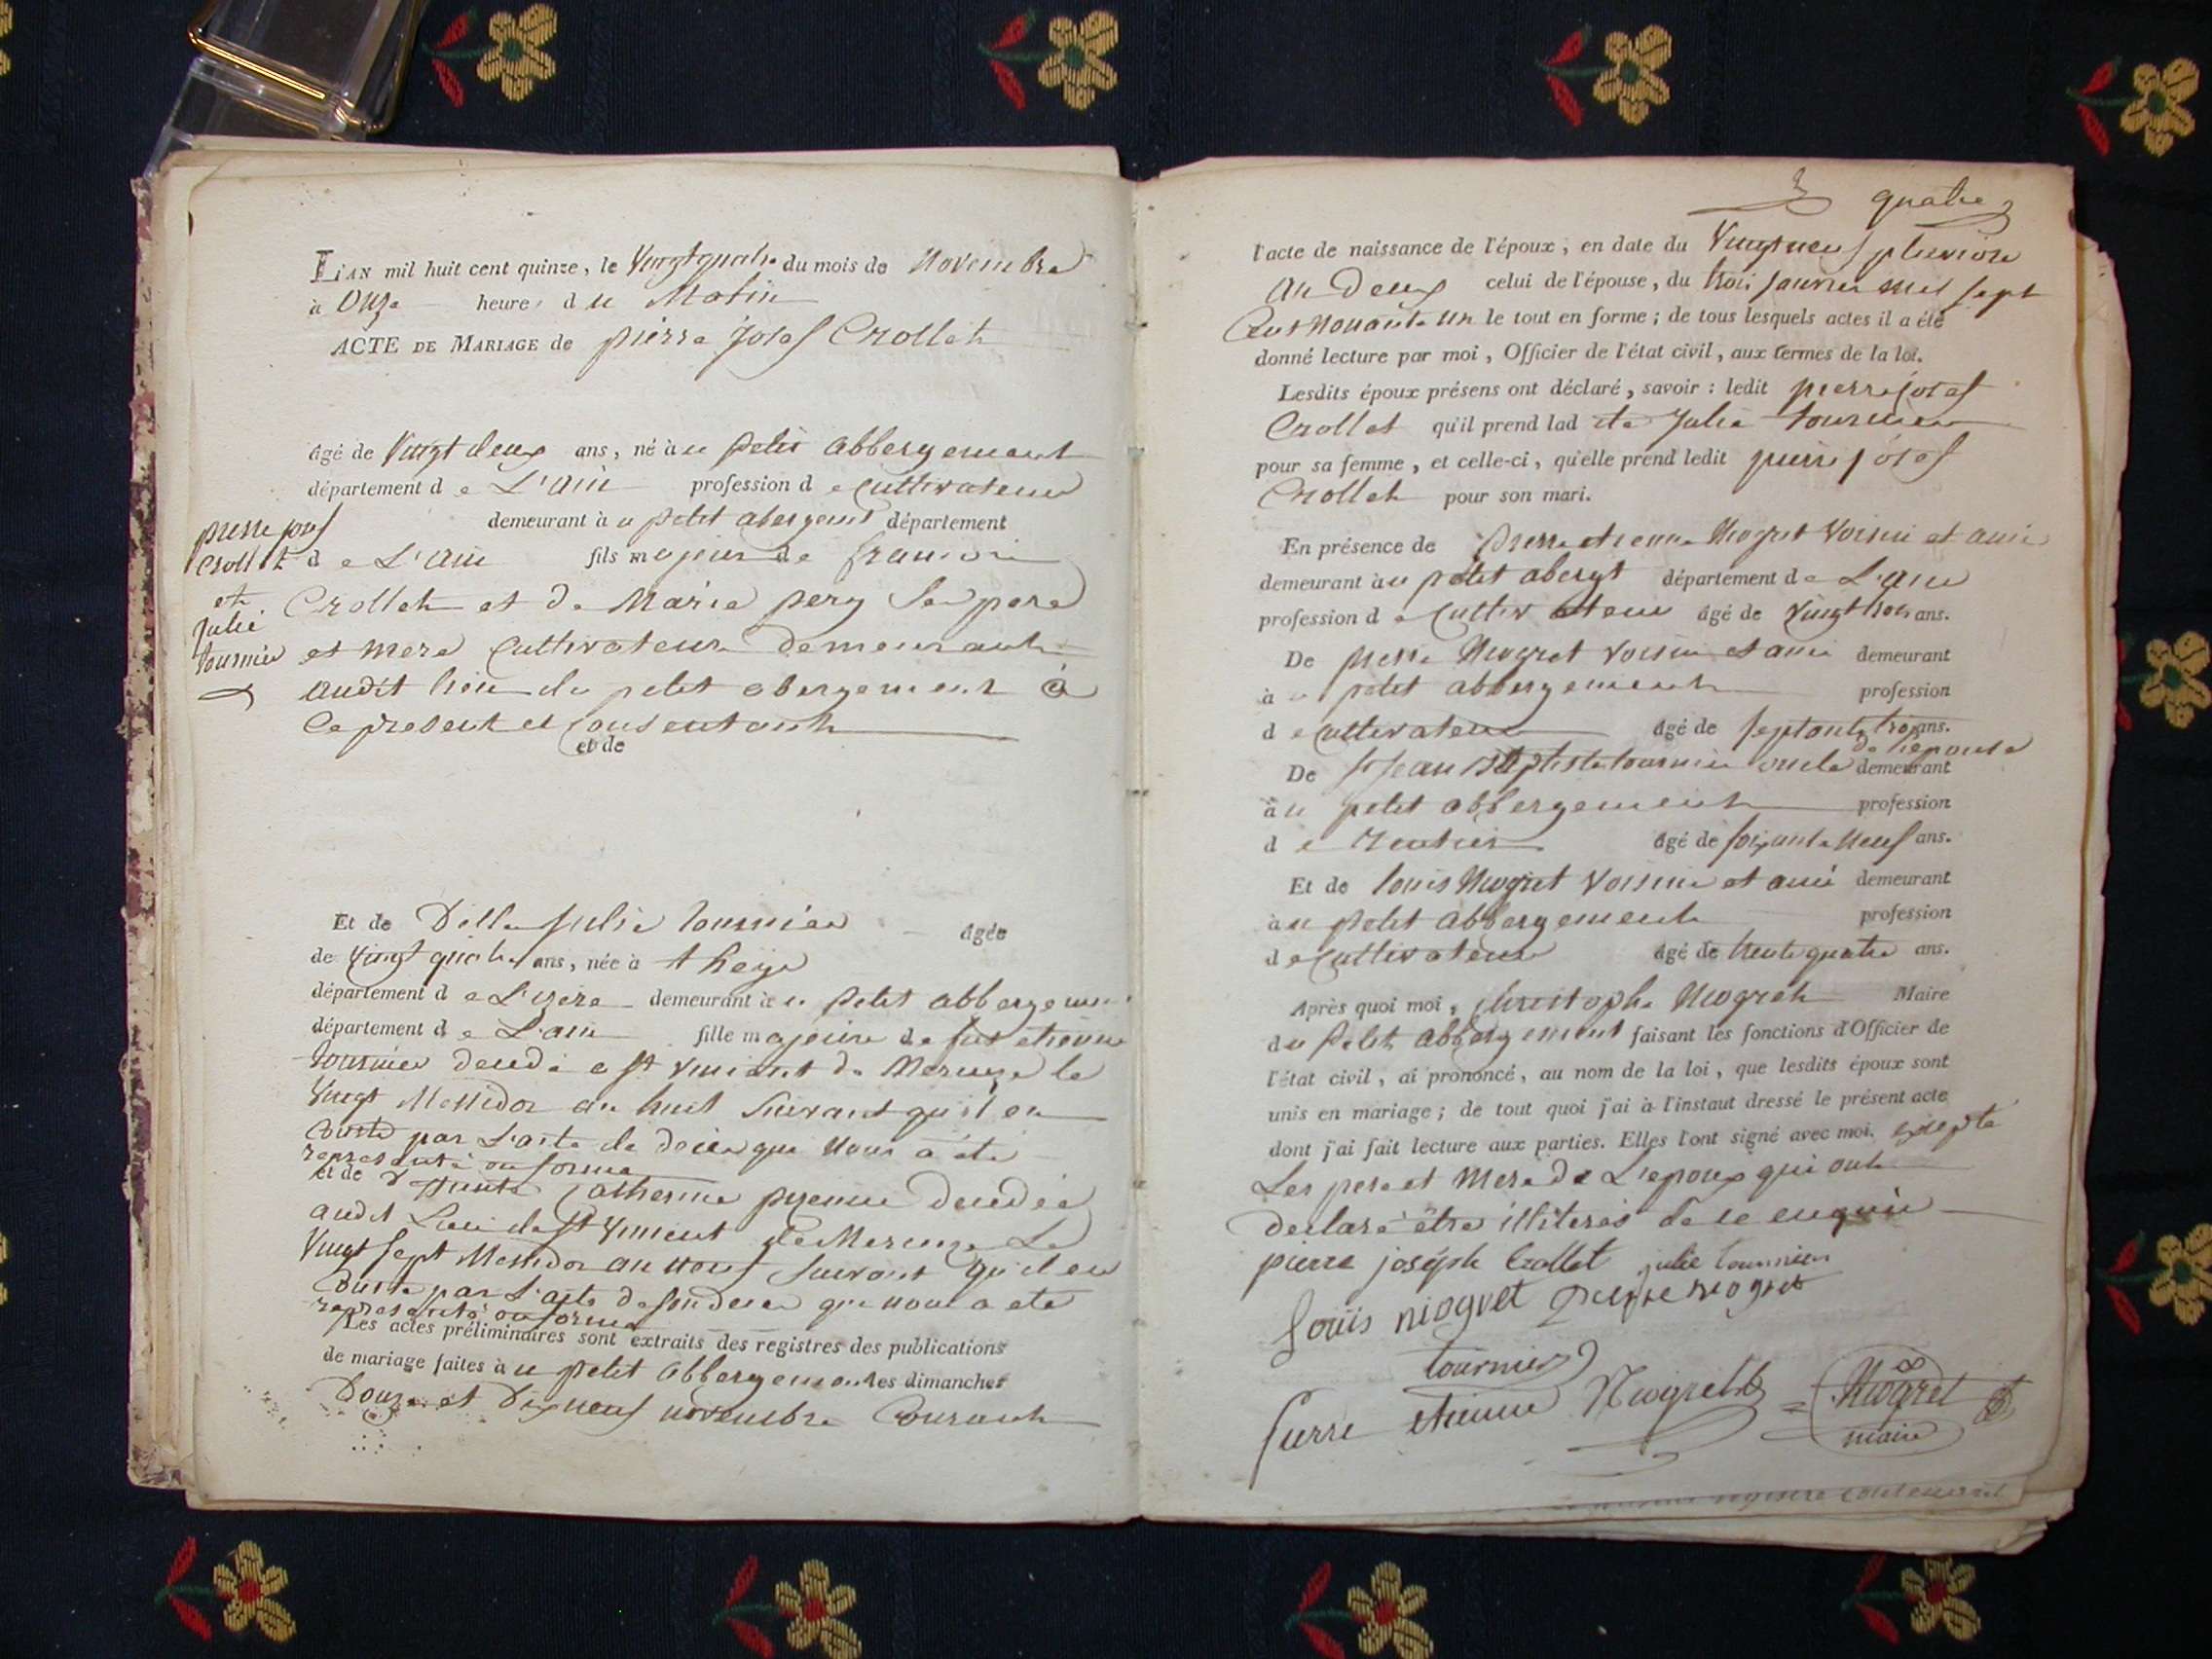 L'AN mil huit cent quinze, le Vingt quatre du mois de Novembre
à Onze heure, du Matin
ACTE DE MARIAGE de pierre Josef Crollet
âgé de Vingt deux ans, né au petit abbergement
département de L'ain profession de Cultivateur
demeurant au petit abergemt département
de L'ain fils majeur de francois
Crollet et de Marie pery Ses pere
et mere Cultivateurs demeurant
audit lieu du petit abergement à
Ce present et Consentant
et de
pierre josef
Crollet
et
Julie
tournier
Et de Dlle Julie tournier âgée
de Vingt quatre ans, née à theys
département de L'izere demeurant au petit abbergement
département de L'ain fille majeure de feu etienne
tournier decedé a St Vincent de Mercuze le
Vingt Messidor an huit Suivant qu'il en
Conste par L'acte de deces que Nous a été
representé en forme
et de defunte Catherine decedée
audit Lieu de St Vincent de Mercuze Le
Vingt Sept Messidor an Suivant qu'il en
Conste par L'acte de que nous a été
representé en forme
Les actes préliminaires sont extraits des registres des publications
de mariage faites au petit abbergement les dimanches
Douze et Dix neuf novembre Courant
quatre
l'acte de naissance de l'époux, en date du Vingt neuf pluviose
an Deux celui de l'épouse, du trois janvier mil sept
Cent Nonante un le tout en forme; de tous lesquels actes il a été
donné lecture par moi, Officier de l'état civil, aux termes de la loi.
Lesdits époux présens ont déclaré, savoir : ledit pierre josef
Crollet qu'il prend ladite Julie tournier
pour sa femme, et celle-ci, qu'elle prend ledit pierre josef
Crollet pour son mari.
En présence de pierre etienne Niogret Voisin et ami
demeurant au petit abergt département de L'ain
profession de Cultivateur âgé de Vingt trois ans.
De pierre Niogret Voisin et ami demeurant
à u petit abbergement profession
de Cultivateur âgé de septante trois ans.
de l'epouse
De Sr Jean Baptiste tournier oncle demeurant
au petit abbergement profession
de Rentier âgé de soixante neuf ans.
Et de louis Niogret Voisin et ami demeurant
au petit abbergement profession
de Cultivateur âgé de trente quatre ans.
Après quoi moi, christophe Niogret Maire
du Petit abbergement faisant les fonctions d'Officier de
l'état civil, ai prononcé, au nom de la loi, que lesdits époux sont
unis en mariage; de tout quoi j'ai à l'instant dressé le présent acte
dont j'ai fait lecture aux parties. Elles l'ont signé avec moi. excepté
Les pere et Mere de L'epoux qui ont
declaré être illiterés de ce enquis
pierre joséph Crollet julie tournier
Louis niogret pierre niogret
tournier
Pierre etienne Niogret Niogret
maire
registre contenant